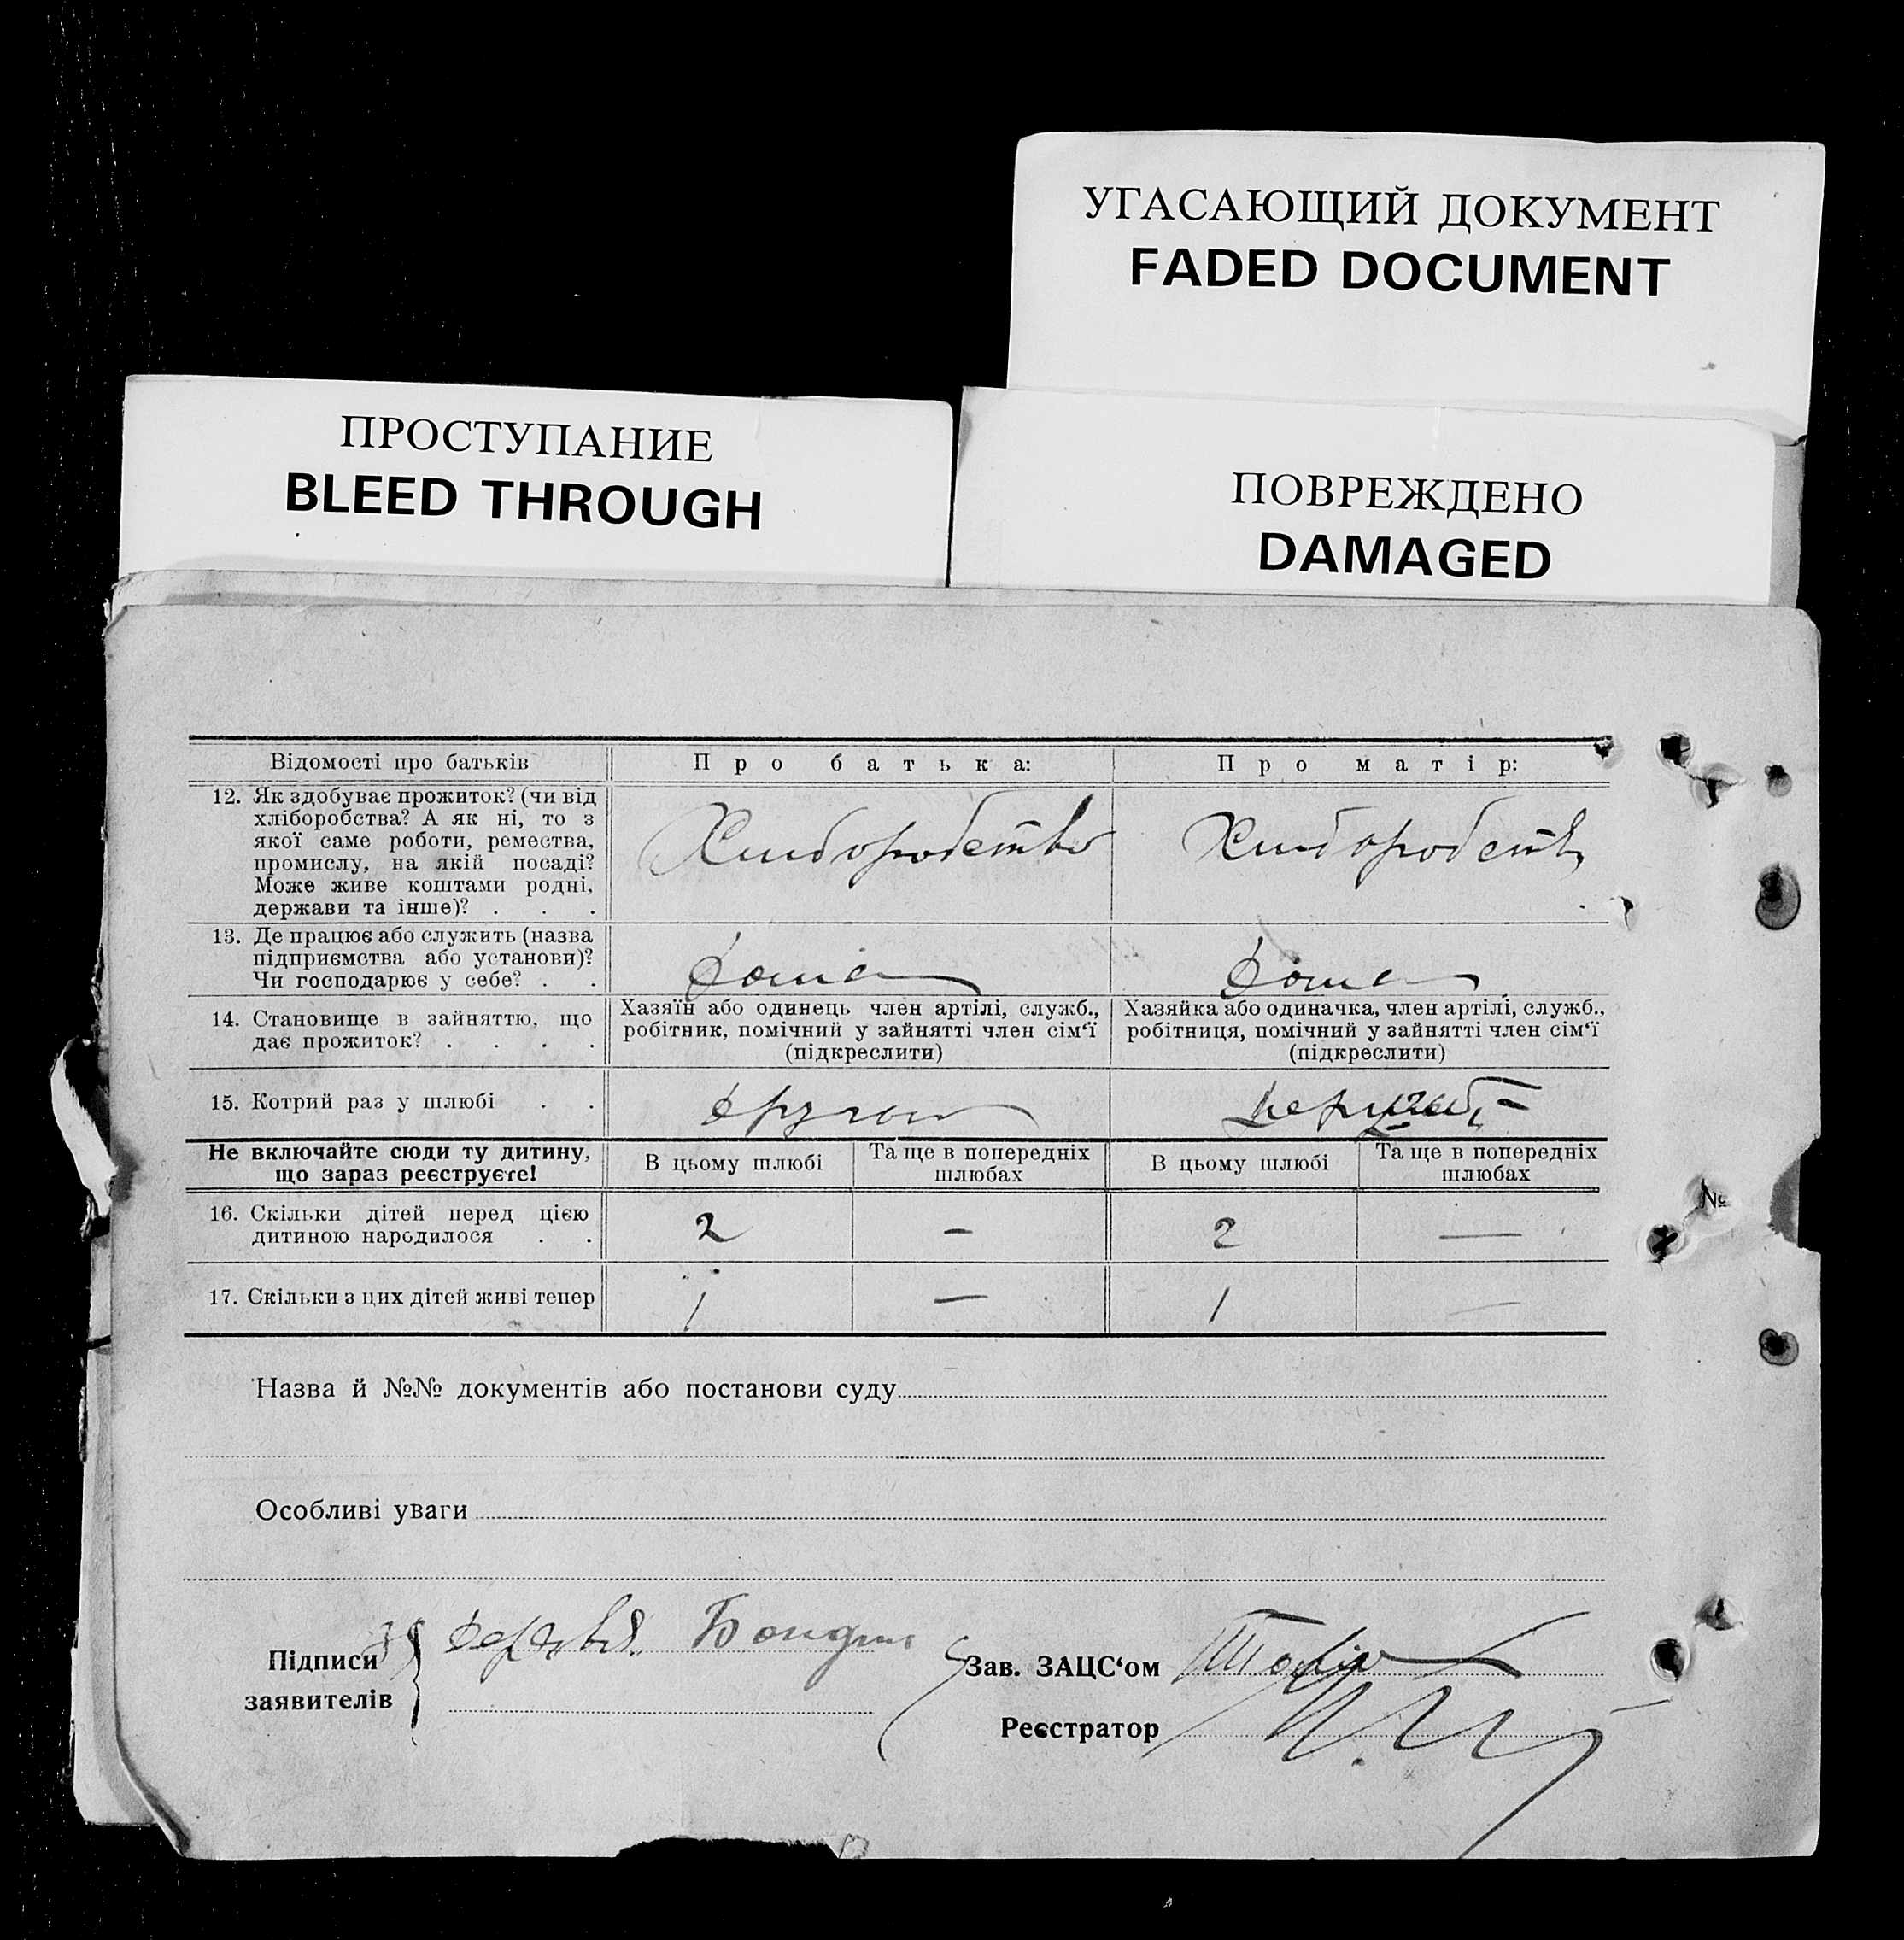 УГАСАЮЩИЙ ДОКУМЕНТ
FADED DOCUMENT
ПРОСТУПАНИЕ
BLEED THROUGH
ПОВРЕЖДЕНО
DAMAGED
Відомості про батьків
Про батька:
Про матір:
12. Як здобуває прожиток? (чи від
хліборобства? А як ні, то з
якої саме роботи, ремества,
промислу, на якій посаді?
Може живе коштами родні,
держави та інше)? . . .
Хлиборобство
Хлиборобств
13. Де працює або служить (назва
підприємства або установи)?
Чи господарює у себе? . .
дома
дома
14. Становище в зайняттю, що
дає прожиток? . . . .
Хазяїн або одинець член артілі, служб.,
робітник, помічний у зайнятті член сім‘ї
(підкреслити)
Хазяйка або одиначка, член артілі, служб.,
робітниця, помічний у зайнятті член сім‘ї
(підкреслити)
15. Котрий раз у шлюбі . .
Не включайте сюди ту дитину,
що зараз реєструєте!
В цьому шлюбі
Та ще в попередніх
шлюбах
В цьому шлюбі
Та ще в попередніх
шлюбах
16. Скільки дітей перед цією
дитиною народилося . .
2
–
2
—
17. Скільки з цих дітей живі тепер
1
—
1
—
№
Назва й №№ документів або постанови суду
Особливі уваги
Підписи
заявителів
Зав. ЗАЦС‘ом
Реєстратор